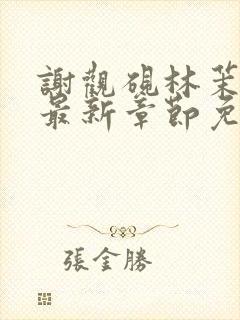 謝觀硯林茉
最新章節免
張金勝